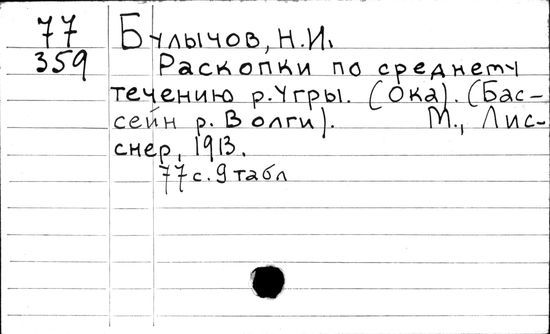 77
359
Булычов, Н.И.
Раскопки по среднему
течению р.Угры. (Ока). (Бас-
сейн р. Волги). М., Лис-
снер, 1913.
77 с. 9 табл